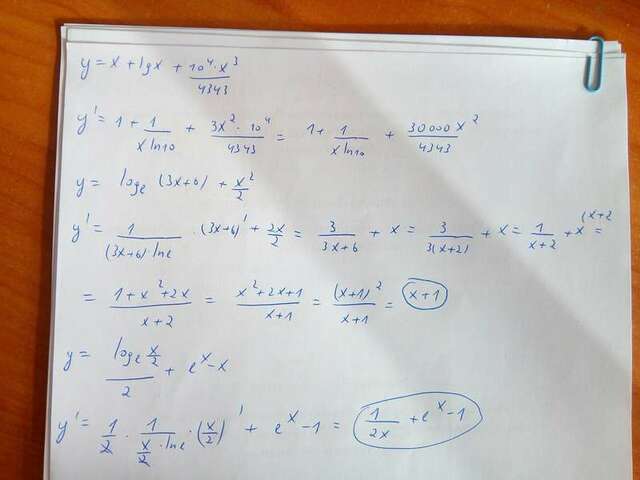 y = x + lg x + 10⁴·x³/4343
y' = 1 + 1/(x ln10) + 3x²·10⁴/4343 = 1 + 1/(x ln10) + 30000x²/4343
y = logₑ(3x+6) + x²/2
y' = 1/((3x+6)·ln e) · (3x+6)' + 2x/2 = 3/(3x+6) + x = 3/(3(x+2)) + x = 1/(x+2) + x^(x+2 =
= (1+x²+2x)/(x+2) = (x²+2x+1)/(x+1) = (x+1)²/(x+1) = x+1
y = (logₑ x/2)/2 + eˣ - x
y' = 1/2 · 1/(x/2 · ln e) · (x/2)' + eˣ - 1 = 1/(2x) + eˣ - 1